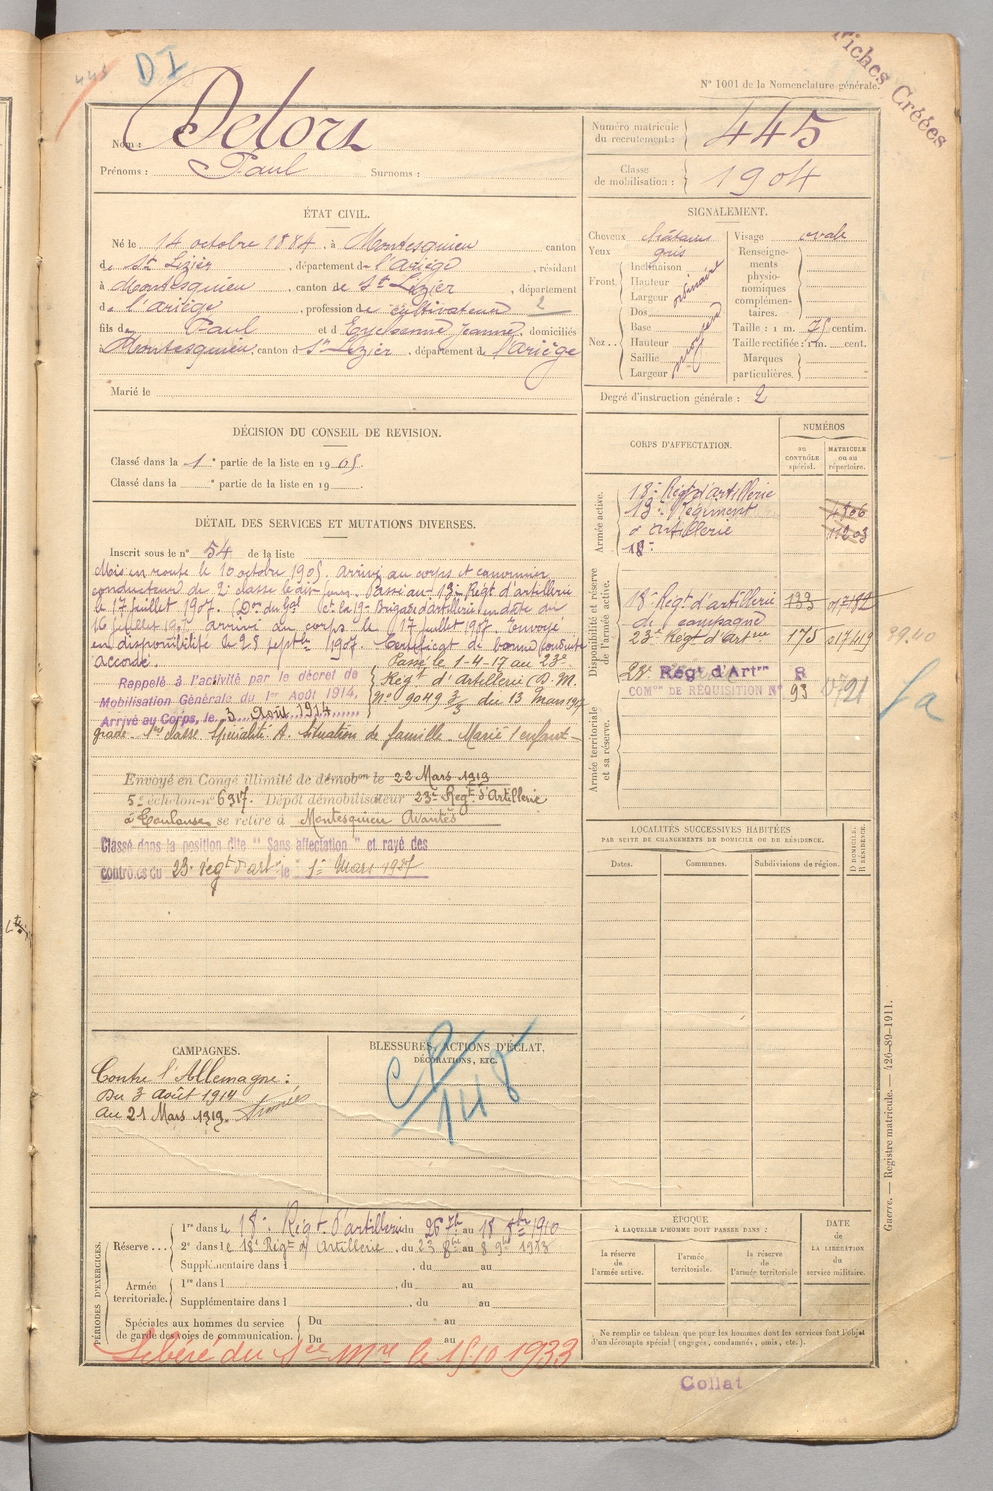 445
DI
Fiches Créées
N° 1001 de la Nomenclature générale.
Nom : Delort
Prénoms : Paul Surnoms :
Numéro matricule du recrutement : 445
Classe de mobilisation : 1904
ÉTAT CIVIL.
Né le 14 octobre 1884, à Montesquieu canton
de St Lizier, département de l'Ariège, résidant
à Montesquieu, canton de St Lizier, département
de l'Ariège, profession de cultivateur 2
fils de Paul et d Jeanne, domiciliés
Montesquieu, canton d St Lizier, département de l'Ariège
Marié le
SIGNALEMENT.
Cheveux châtains
Yeux gris
Front. Inclinaison
Hauteur ordinaire
Largeur
Nez.. Dos
Base
Hauteur moyen
Saillie
Largeur
Visage ovale
Renseignements physionomiques complémentaires.
Taille : 1 m. 75 centim.
Taille rectifiée : 1 m. cent.
Marques particulières.
Degré d'instruction générale : 2
DÉCISION DU CONSEIL DE REVISION.
Classé dans la 1e partie de la liste en 1905.
Classé dans la e partie de la liste en 19
DÉTAIL DES SERVICES ET MUTATIONS DIVERSES.
Inscrit sous le n° 54 de la liste
Mis en route le 10 octobre 1905. Arrivé au corps et canonnier
conducteur de 2e classe le dit jour. Passé au 13e Régt d'artillerie
le 17 juillet 1907. (Don du Gal Ct la 19e Brigade d'artillerie en date du
16 juillet 1907 arrivé au corps le 17 juillet 1907. Envoyé
en disponibilité le 28 septbre 1907. Certificat de bonne conduite
accordé.
Passé le 1-4-17 au 23e
Régt d'Artillerie (D. M.
N° 9049 3/3 du 13 Mars 1917
Rappelé à l'activité par le décret de
Mobilisation Générale du 1er Août 1914,
Arrivé au Corps, le 3 Août 1914
grade. classe Spécialité. A. Situation de famille. Marié 1 enfant
Envoyé en Congé illimité de démobon le 22 Mars 1919
5e échelon n° 6917. Dépôt démobilisateur 23e Régt d'Artillerie
à Toulouse se retire à Montesquieu Avantès
Classé dans la position dite "Sans affectation" et rayé des
contrôles du 23e régt d'artie le 1er Mars 1927
CORPS D'AFFECTATION.
NUMÉROS
au CONTRÔLE spécial.
MATRICULE ou au répertoire.
Armée active.
18e Régt d'artillerie
13e Régiment
d'artillerie
18e
Disponibilité et réserve de l'armée active.
18e Régt d'artillerie 133
de campagne
23e Régt d'Artie 175
99.40
23e Régt d'Artie R
COMon DE RÉQUISITION N° 93
Armée territoriale et sa réserve.
LOCALITÉS SUCCESSIVES HABITÉES
PAR SUITE DE CHANGEMENTS DE DOMICILE OU DE RÉSIDENCE.
Dates. Communes. Subdivisions de région. D DOMICILE. R RÉSIDENCE.
CAMPAGNES.
Contre l'Allemagne :
Du 3 Août 1914
au 21 Mars 1919.
BLESSURES, ACTIONS D'ÉCLAT,
DÉCORATIONS, ETC.
PÉRIODES D'EXERCICES.
Réserve... 1re dans le 18e Régt d'artillerie du 26 7b au 18 8bre 1910
2e dans le 18e Régt d'Artillerie, du 23 8bre au 8 9bre 1913
Supplémentaire dans l , du au
Armée territoriale. 1re dans l , du au
Supplémentaire dans l , du au
Spéciales aux hommes du service de garde des voies de communication. Du au
Du au
Libéré du Sce Mre le 15/10 1933
ÉPOQUE
À LAQUELLE L'HOMME DOIT PASSER DANS :
la réserve de l'armée active.
l'armée territoriale.
la réserve de l'armée territoriale
DATE DE LA LIBÉRATION du service militaire.
Ne remplir ce tableau que pour les hommes dont les services font l'objet
d'un décompte spécial (engagés, condamnés, omis, etc.).
Guerre. — Registre matricule. — 426-89-1911.
Collat